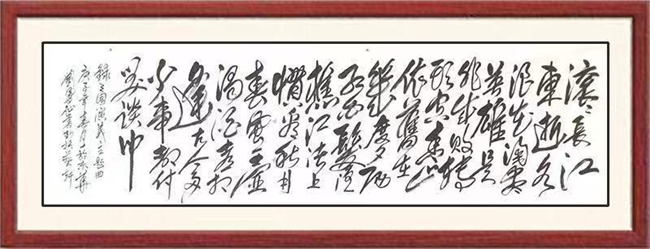 滚〻長江
東逝水
浪花淘盡
英雄是
非成敗轉
頭空青山
依舊在
幾度夕陽
紅白髮漁
樵江渚上
慣看秋月
春風一壶
濁酒喜相
逢古今多
少事都付
笑談中
錄三國演義主題曲
庚子年春月於